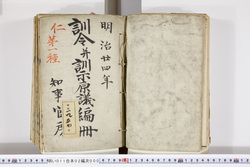 明治廿四年
訓令并訓示原議編冊
知事官房
仁第一種